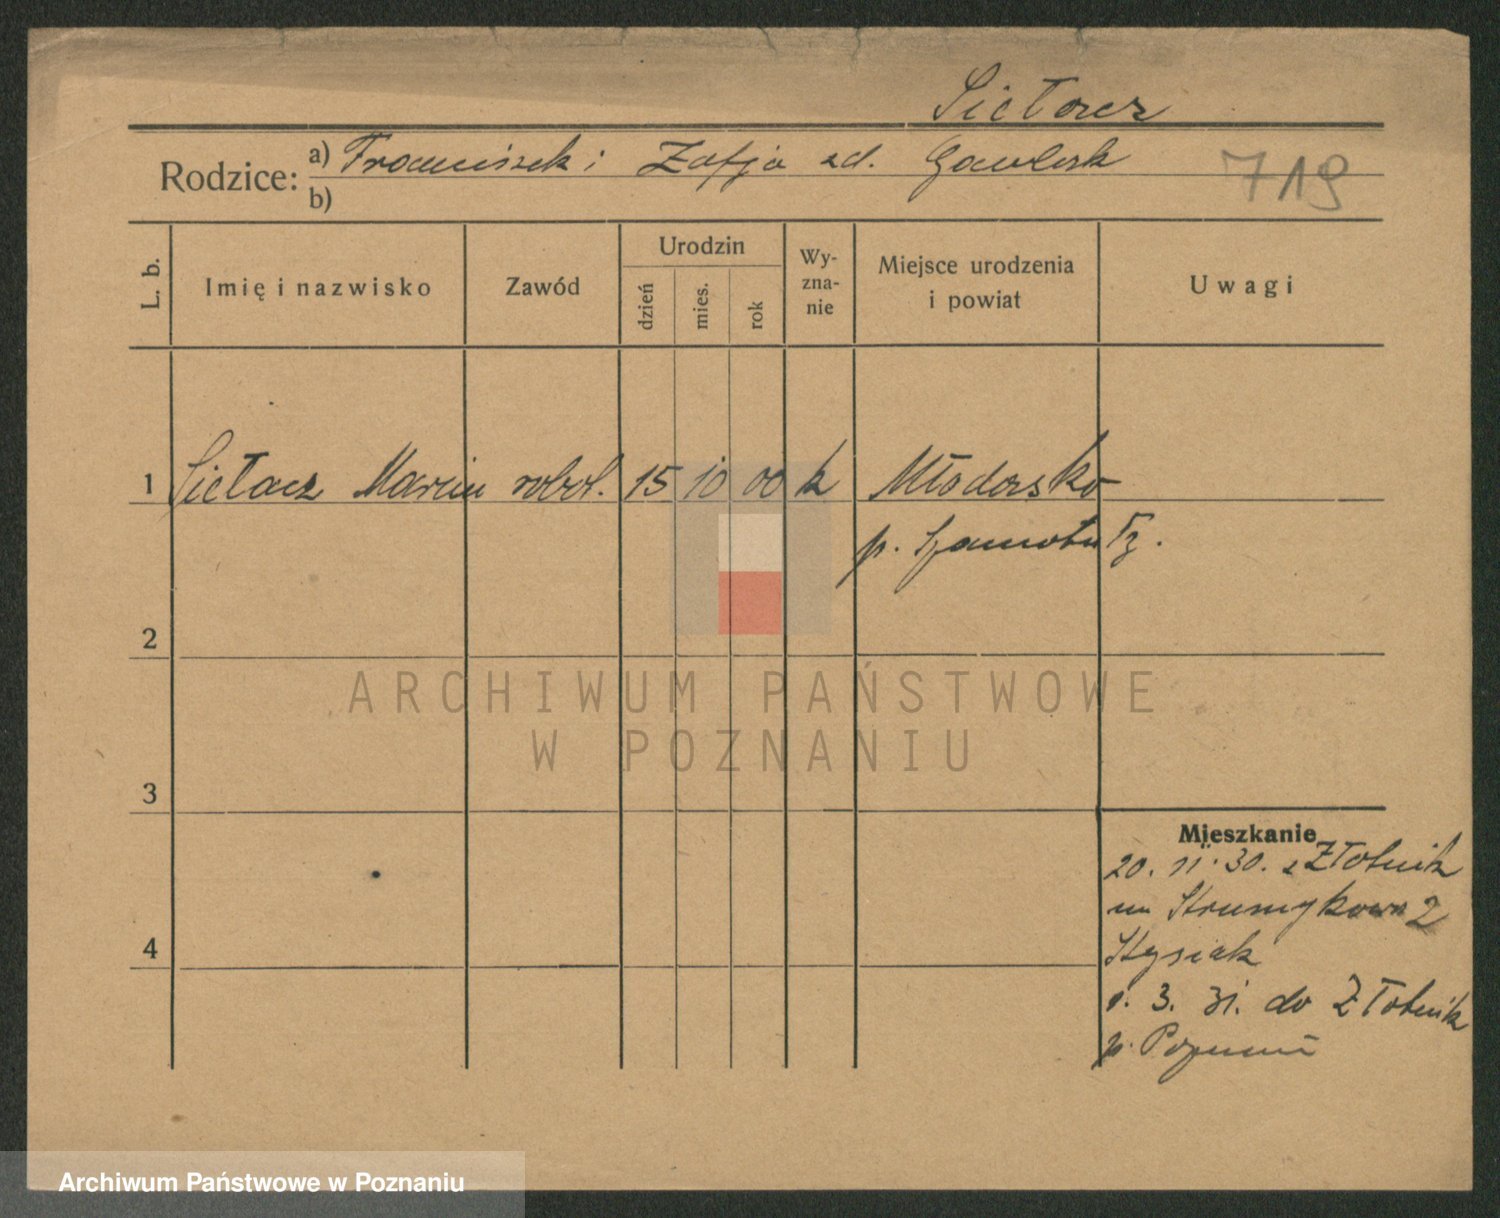 Sietacz
Rodzice: a) Franciszek i Zofja zd. Gawlak
b)
719
L. b.
Imię i nazwisko
Zawód
Urodzin
dzień
mies.
rok
Wy-
zna-
nie
Miejsce urodzenia
i powiat
Uwagi
1 Sietacz Marcin robot. 15 10 00 k Młodasko
p. Szamotuły.
2
3
4
ARCHIWUM PAŃSTWOWE
W POZNANIU
Mieszkanie
20. 11. 30. z Złotnik
ul. Strumykowa 2
Stysiak
3. 31. do Złotnik
p. Poznań
Archiwum Państwowe w Poznaniu